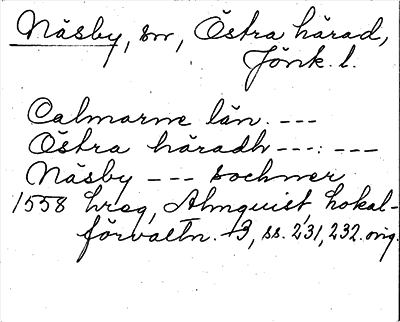 Näsby, sn, Östra härad,
Jönk. l.
Calmarne län. ---
Östra häradh ---: ---
Näsby --- sochner
1558 hreg, Almquist, Lokal-
förvaltn. 3, ss. 231, 232. orig.